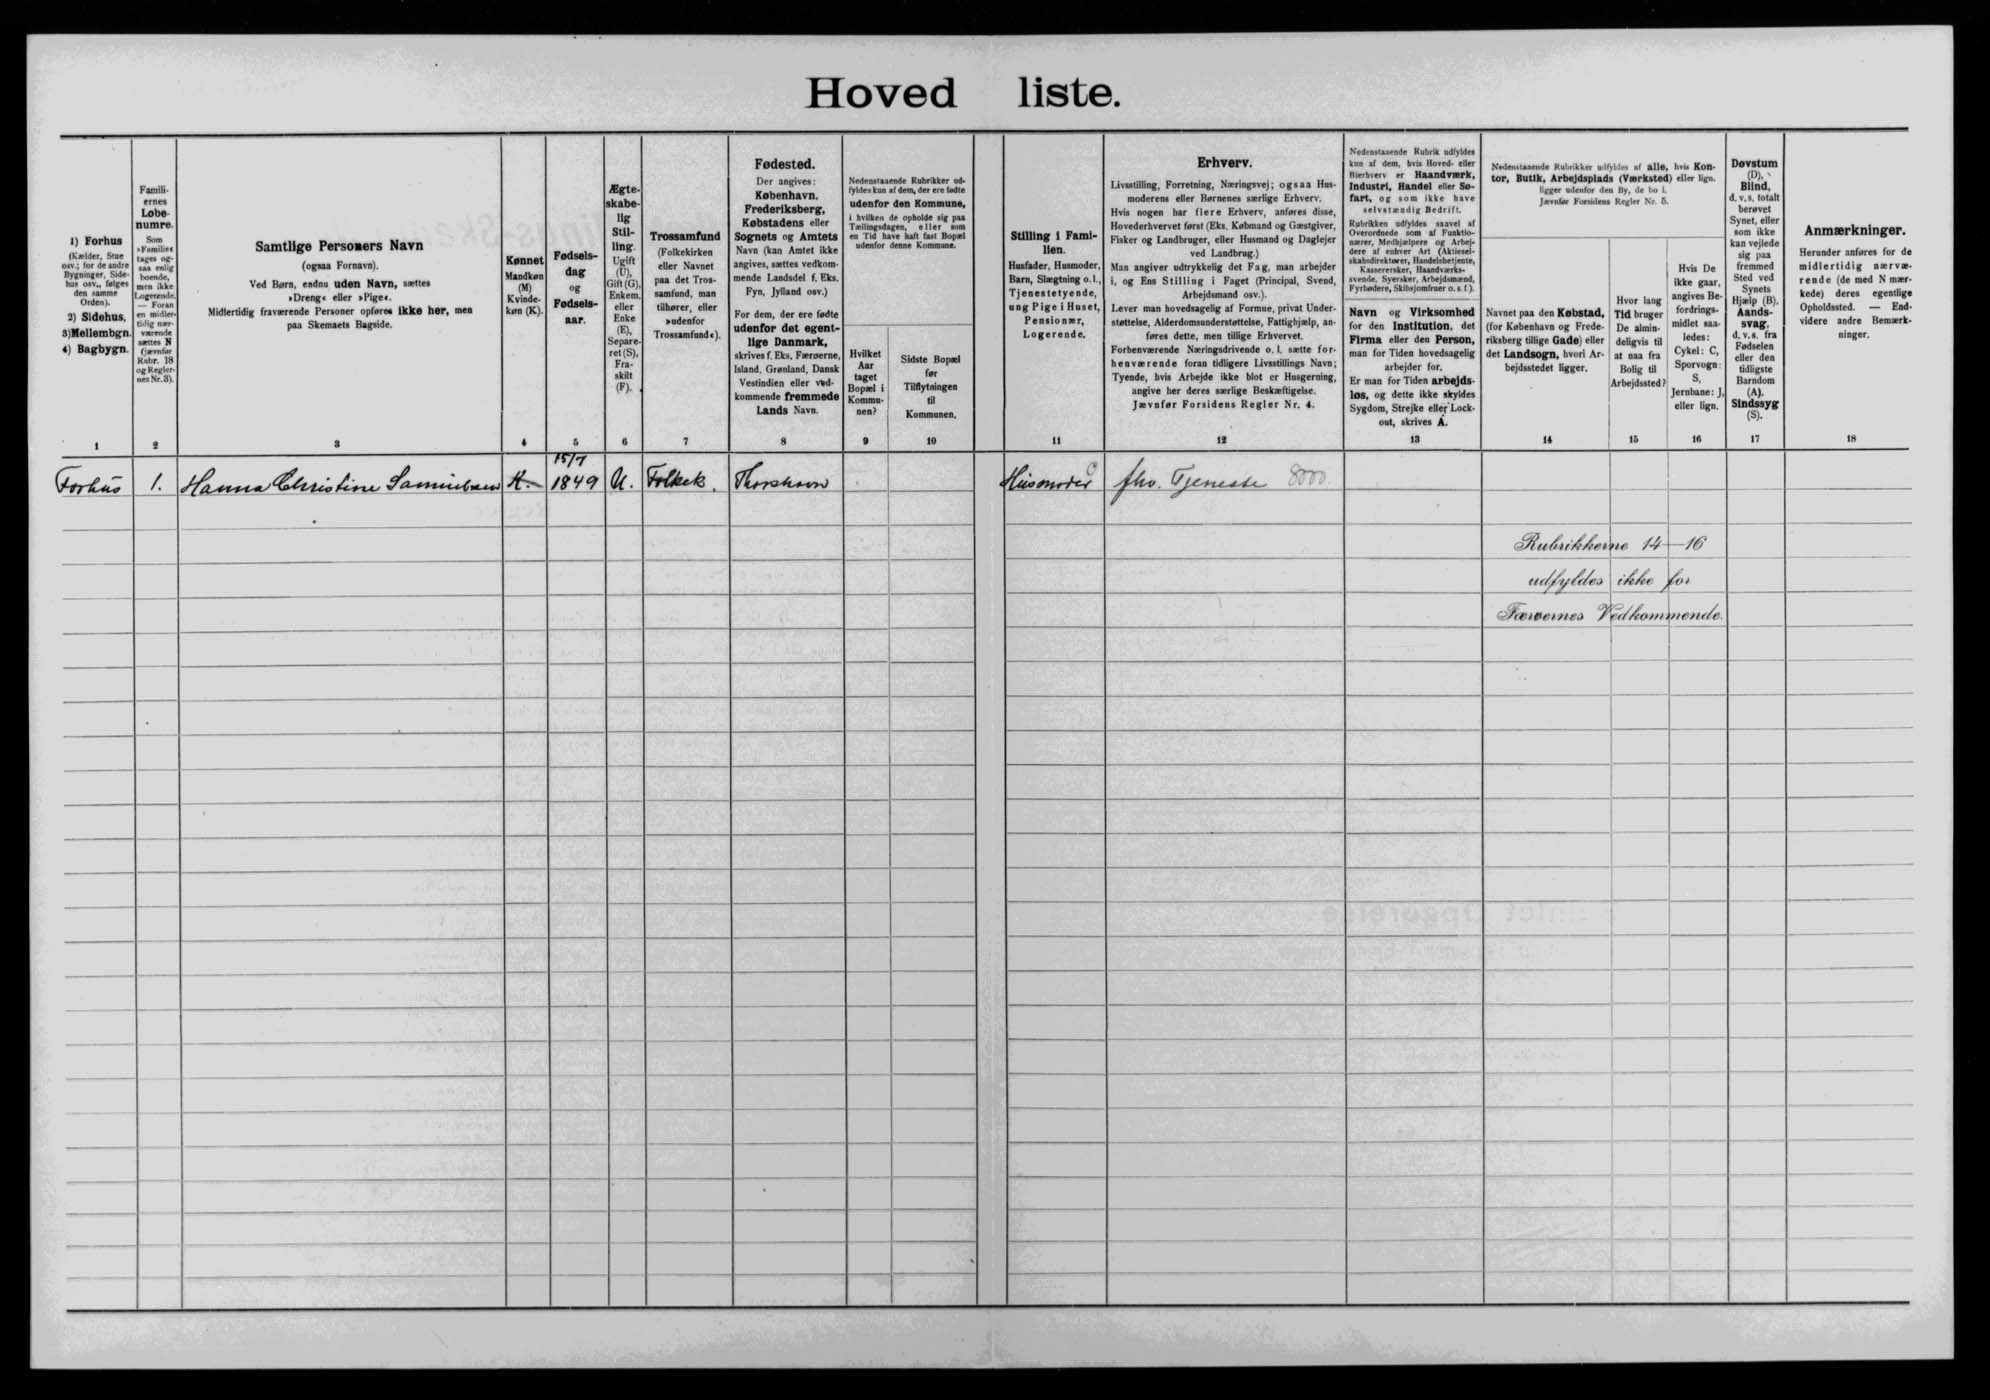 Hovedliste.
1) Forhus
(Kælder, Stue
osv.; for de andre
Bygninger, Side-
hus osv., følges
den samme
Orden).
2) Sidehus,
3) Mellembgn.
4) Bagbygn.
1
Famili-
ernes
Løbe-
numre.
Som
»Familie«
tages og-
saa enlig
boende,
men ikke
Logerende.
— Foran
en midler-
tidig nær-
værende
sættes N
(jævnfør
Rubr. 18
og Regler-
nes Nr. 3).
2
Samtlige Personers Navn
(ogsaa Fornavn).
Ved Børn, endnu uden Navn, sættes
»Dreng« eller »Pige«.
Midlertidig fraværende Personer opføres ikke her, men
paa Skemaets Bagside.
3
Kønnet
Mandkøn
(M)
Kvinde-
køn (K).
4
Fødsels-
dag
og
Fødsels-
aar.
5
Ægte-
skabe-
lig
Stil-
ling.
Ugift
(U),
Gift (G),
Enkem.
eller
Enke
(E),
Separe-
ret (S),
Fra-
skilt
(F).
6
Trossamfund
(Folkekirken
eller Navnet
paa det Tros-
samfund, man
tilhører, eller
»udenfor
Trossamfund«).
7
Fødested.
Der angives:
København,
Frederiksberg,
Købstadens eller
Sognets og Amtets
Navn (kan Amtet ikke
angives, sættes vedkom-
mende Landsdel f. Eks.
Fyn, Jylland osv.)
For dem, der ere fødte
udenfor det egent-
lige Danmark,
skrives f. Eks. Færøerne,
Island, Grønland, Dansk
Vestindien eller ved-
kommende fremmede
Lands Navn.
8
Nedenstaaende Rubrikker ud-
fyldes kun af dem, der ere fødte
udenfor den Kommune,
i hvilken de opholde sig paa
Tællingsdagen, eller som
en Tid have haft fast Bopæl
udenfor denne Kommune.
Hvilket
Aar
taget
Bopæl i
Kommu-
nen?
9
Sidste Bopæl
før
Tilflytningen
til
Kommunen.
10
Stilling i Fami-
lien.
Husfader, Husmoder,
Barn, Slægtning o. l.,
Tjenestetyende,
ung Pige i Huset,
Pensionær,
Logerende.
11
Erhverv.
Livsstilling, Forretning, Næringsvej; ogsaa Hus-
moderens eller Børnenes særlige Erhverv.
Hvis nogen har flere Erhverv, anføres disse,
Hovederhvervet først (Eks. Købmand og Gæstgiver,
Fisker og Landbruger, eller Husmand og Daglejer
ved Landbrug.)
Man angiver udtrykkelig det Fag, man arbejder
i, og Ens Stilling i Faget (Principal, Svend,
Arbejdsmand osv.).
Lever man hovedsagelig af Formue, privat Under-
støttelse, Alderdomsunderstøttelse, Fattighjælp, an-
føres dette, men tillige Erhvervet.
Forhenværende Næringsdrivende o. l. sætte for-
henværende foran tidligere Livsstillings Navn;
Tyende, hvis Arbejde ikke blot er Husgerning,
angive her deres særlige Beskæftigelse.
Jævnfør Forsidens Regler Nr. 4.
12
Nedenstaaende Rubrik udfyldes
kun af dem, hvis Hoved- eller
Bierhverv er Haandværk,
Industri, Handel eller Sø-
fart, og som ikke have
selvstændig Bedrift.
Rubrikken udfyldes saavel af
Overordnede som af Funktio-
nærer, Medhjælpere og Arbej-
dere af enhver Art (Aktiesel-
skabsdirektører, Handelsbetjente,
Kassererersker, Haandværks-
svende, Syersker, Arbejdsmænd,
Fyrbødere, Skibsjomfruer o. s. f.).
Navn og Virksomhed
for den Institution, det
Firma eller den Person,
man for Tiden hovedsagelig
arbejder for.
Er man for Tiden arbejds-
løs, og dette ikke skyldes
Sygdom, Strejke eller Lock-
out, skrives A.
13
Nedenstaaende Rubrikker udfyldes af alle, hvis Kon-
tor, Butik, Arbejdsplads (Værksted) eller lign.
ligger udenfor den By, de bo i.
Jævnfør Forsidens Regler Nr. 5.
Navnet paa den Købstad,
(for København og Frede-
riksberg tillige Gade) eller
det Landsogn, hvori Ar-
bejdsstedet ligger.
14
Hvor lang
Tid bruger
De almin-
deligvis til
at naa fra
Bolig til
Arbejdssted?
15
Hvis De
ikke gaar,
angives Be-
fordrings-
midlet saa-
ledes:
Cykel: C,
Sporvogn:
S,
Jernbane: J,
eller lign.
16
Døvstum
(D),
Blind,
d. v. s. totalt
berøvet
Synet, eller
som ikke
kan vejlede
sig paa
fremmed
Sted ved
Synets
Hjælp (B).
Aands-
svag,
d. v. s. fra
Fødselen
eller den
tidligste
Barndom
(A).
Sindssyg
(S).
17
Anmærkninger.
Herunder anføres for de
midlertidig nærvæ-
rende (de med N mær-
kede) deres egentlige
Opholdssted. — End-
videre andre Bemærk-
ninger.
18
Forhus 1. Hanna Christine Samuelsen K. 15/7 1849 U. Folkek. Thorshavn Husmoder fhv. Tjeneste 8000.
Rubrikkerne 14—16
udfyldes ikke for
Færøernes Vedkommende.